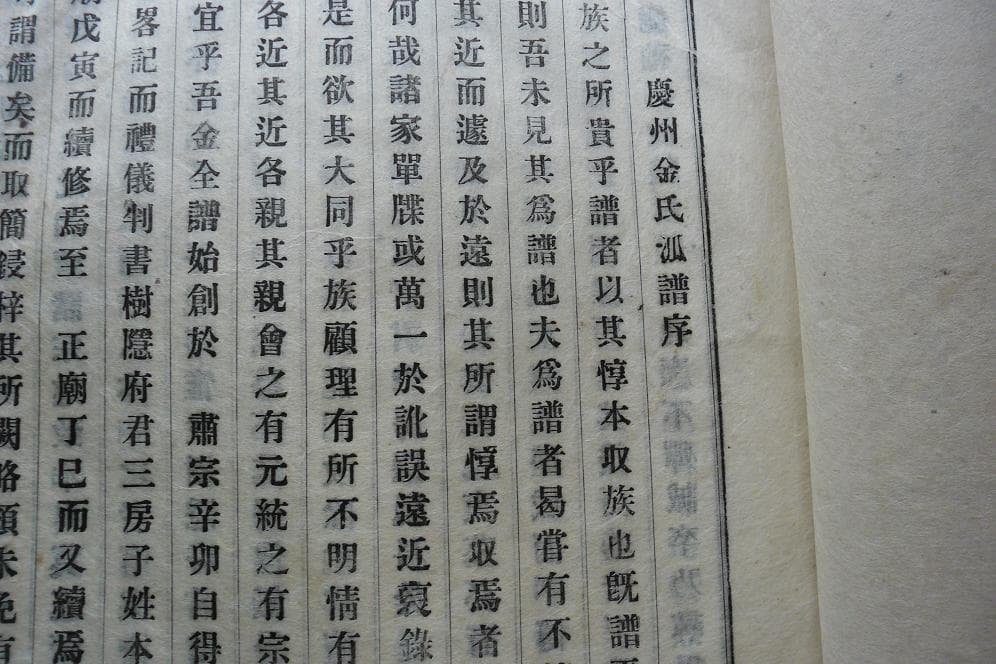 慶州金氏派譜序
族之所貴乎譜者以其惇本取族也旣譜
則吾未見其爲譜也夫爲譜者曷嘗有不
其近而遽及於遠則其所謂惇焉取焉者
何哉諸家單牒或萬一於訛誤遠近裒錄
是而欲其大同乎族顧理有所不明情有
各近其近各親其親會之有元統之有宗
宜乎吾金全譜始創於 肅宗辛卯自得
畧記而禮儀判書樹隱府君三房子姓本
戊寅而續修焉至 正廟丁巳而又續焉
謂備矣而取簡鋟梓其所闕略頗未免有